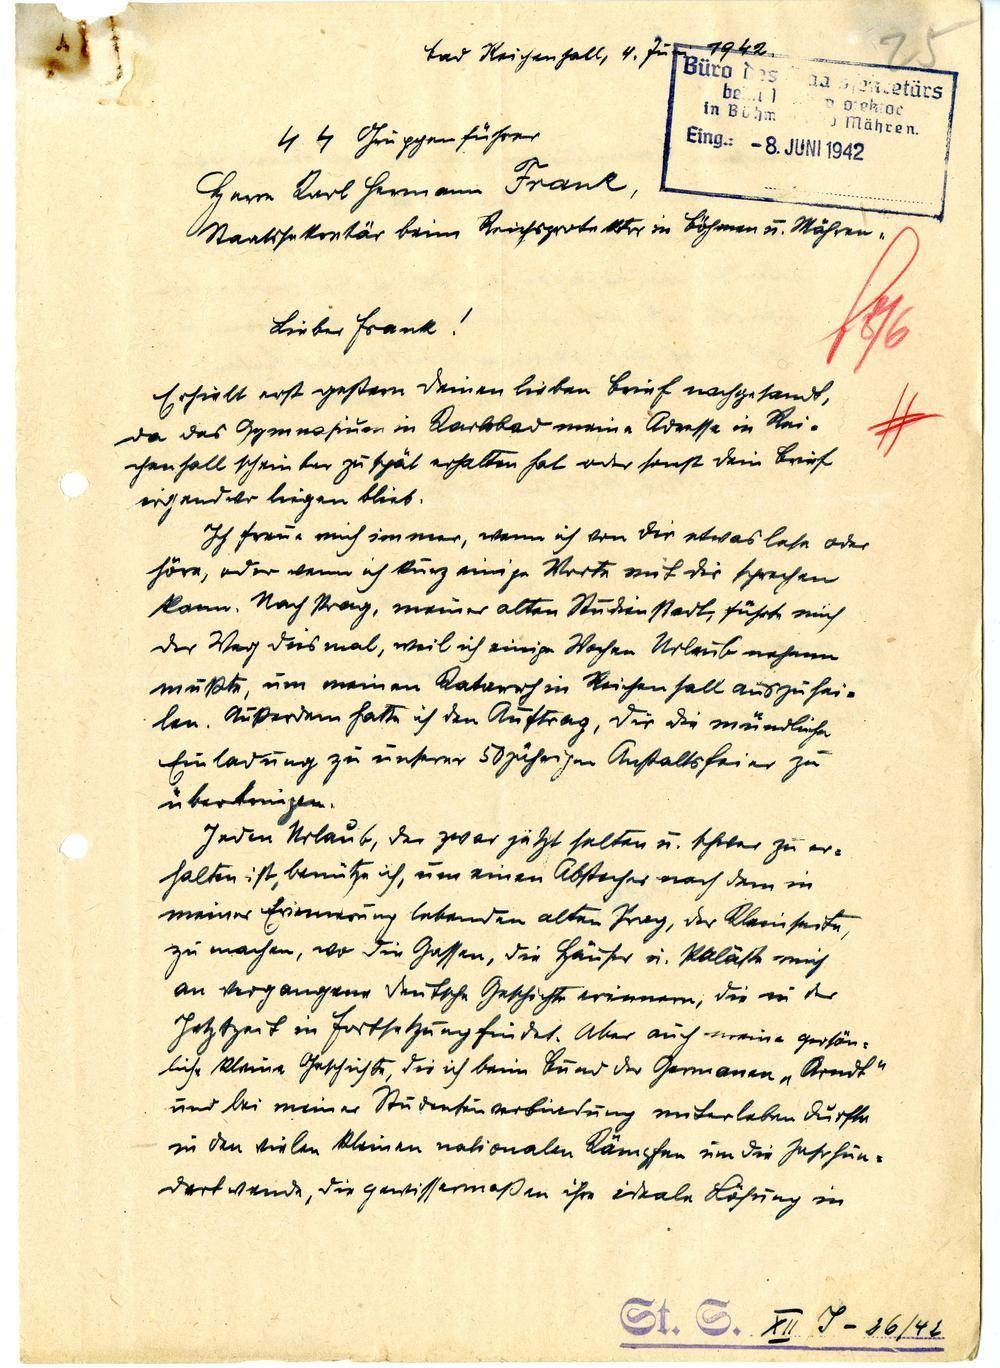 Bad Reichenhall, 4. Juni 1942.
25
Büro des Staatssekretärs
beim Reichsprotektor
in Böhmen und Mähren.
Eing.: -8. JUNI 1942
SS Gruppenführer
Herrn Karl Hermann Frank,
Staatssekretär beim Reichsprotektor in Böhmen u. Mähren.
8/6
Lieber Frank!
Erhielt erst gestern Deinen lieben Brief nachgesandt,
da das Gymnasium in Karlsbad meine Adresse in Rei-
chenhall scheinbar zu spät erhalten hat oder sonst dein Brief
irgendwo liegen blieb.
Ich freue mich immer, wenn ich von Dir etwas lese oder
höre, oder wenn ich kurz einige Worte mit Dir sprechen
kann. Nach Prag, meiner alten Studienstadt, führte mich
der Weg diesmal, weil ich einige Wochen Urlaub nehmen
mußte, um meinen Katarrh in Reichenhall auszuhei-
len. Außerdem hatte ich den Auftrag, Dir die mündliche
Einladung zu unserer 50jährigen Anstaltsfeier zu
überbringen.
Jeden Urlaub, der zwar jetzt selten u. schwer zu er-
halten ist, benütze ich, um einen Abstecher nach dem in
meiner Erinnerung lebenden alten Prag, der Kleinseite,
zu machen, wo die Gassen, die Häuser u. Paläste mich
an vergangene deutsche Geschichte erinnern, die in der
Jetztzeit in Fortsetzung findet. Aber auch meine persön-
liche kleine Geschichte, die ich beim Bund der Germanen „Arndt"
und bei meiner Studentenverbindung miterleben durfte
in den vielen kleinen nationalen Kämpfen um die Jahrhun-
dertwende, die gewissermaßen ihre ideale Lösung in
St. S. XII J - 26/42